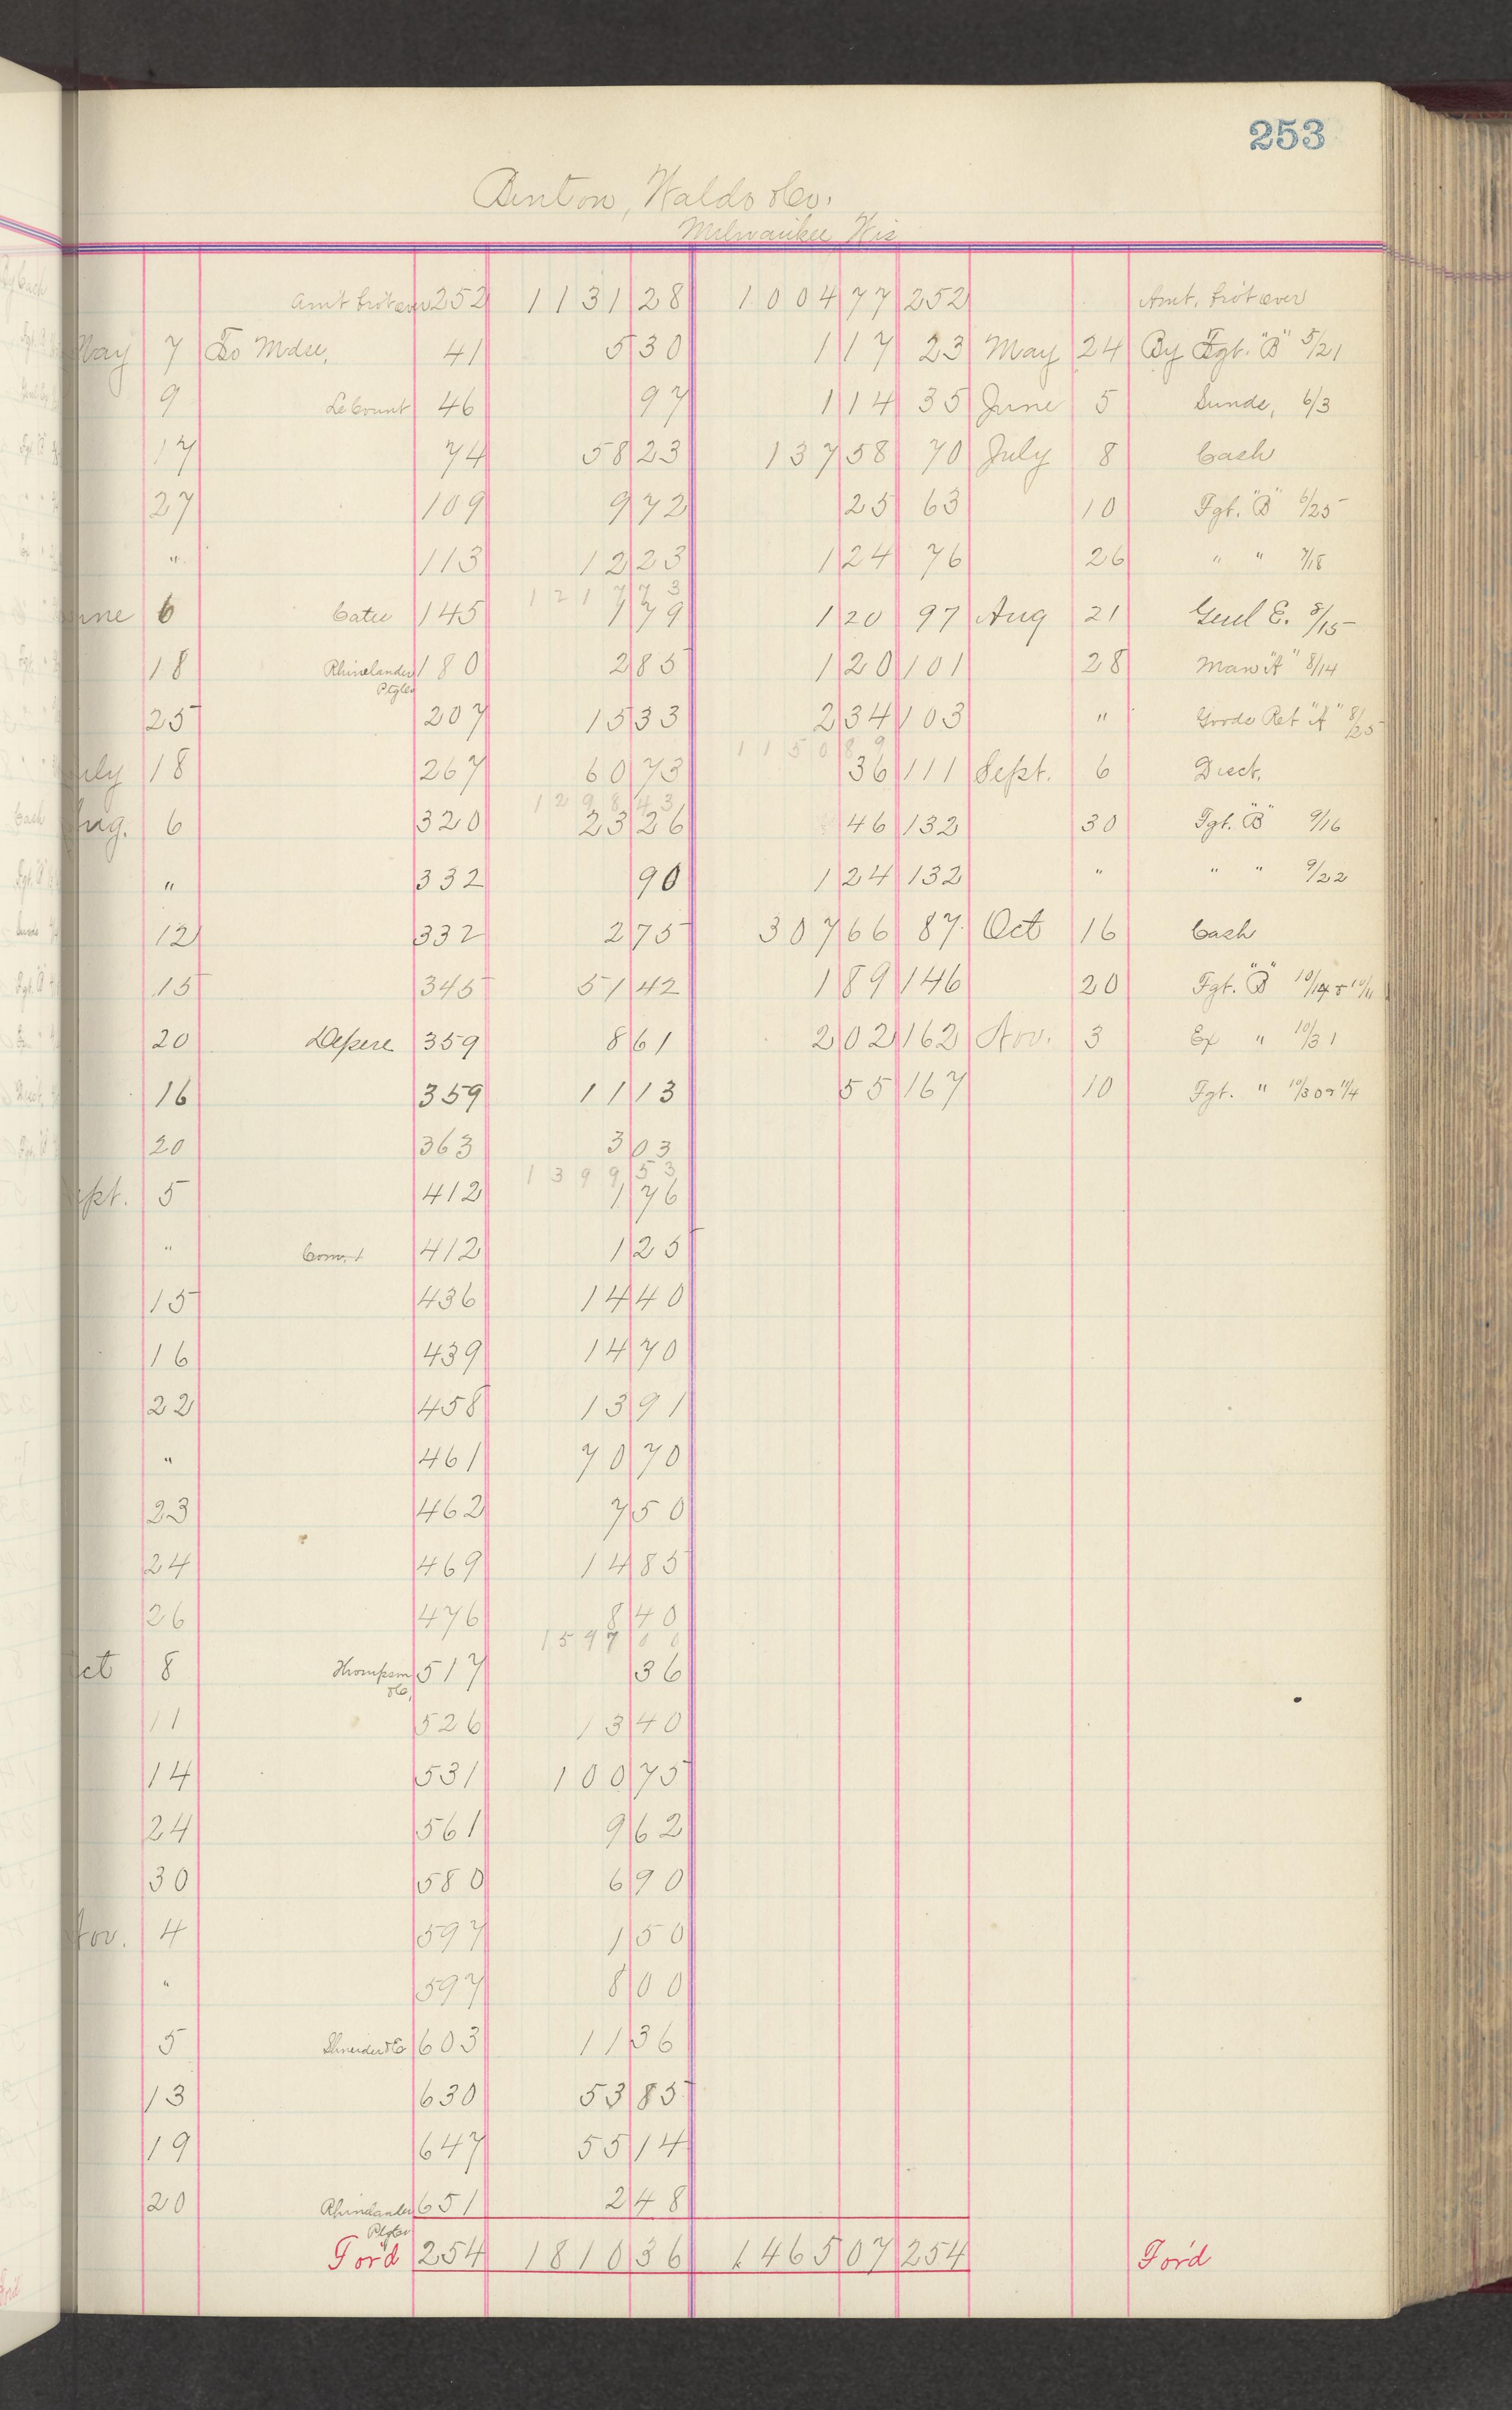 253
Benton, Waldo & Co.
Milwaukee, Wis
Amt brot over 252 1131 28 1004 77 252 Amt. brot over
May 7 To Mdse, 41 5 30 1 17 23 May 24 By Fgt. "B" 5/21
9 LeCount 46 97 1 14 35 June 5 Sunds, 6/3
17 74 58 23 137 58 70 July 8 Cash
27 109 9 72 25 63 10 Fgt. "B" 6/25
" 113 12 23 1 24 76 26 " " 7/18
1217 73
June 6 Cates 145 1 79 1 20 97 Aug 21 Genl E. 8/15
18 Rhinelander 180 2 85 1 20 101 28 Man "A" 8/14
25 207 15 33 2 34 103 " Goods Ret "A" 8/25
1150 89
July 18 267 60 73 36 111 Sept. 6 Disct.
1298 43
Aug. 6 320 23 26 46 132 30 Fgt. "B" 9/16
" 332 90 1 24 132 " " " 9/22
12 332 2 75 307 66 87 Oct 16 Cash
15 345 51 42 1 89 146 20 Fgt. "B" 10/14 & 10/11
20 Depere 359 8 61 2 02 162 Nov. 3 Ex " 10/31
16 359 11 13 55 167 10 Fgt. " 10/30 & 11/4
20 363 3 03
1399 53
Sept. 5 412 1 76
" 412 1 25
15 436 14 40
16 439 14 70
22 458 13 91
" 461 70 70
23 462 7 50
24 469 14 85
26 476 8 40
1597 00
Oct 8 Thompson 517 36
& Co,
11 526 13 40
14 531 100 75
24 561 9 62
30 580 6 90
Nov. 4 597 1 50
" 597 8 00
5 603 11 36
13 630 53 85
19 647 55 14
20 Rhinelander 651 2 48
For'd 254 1810 36 1465 07 254 For'd